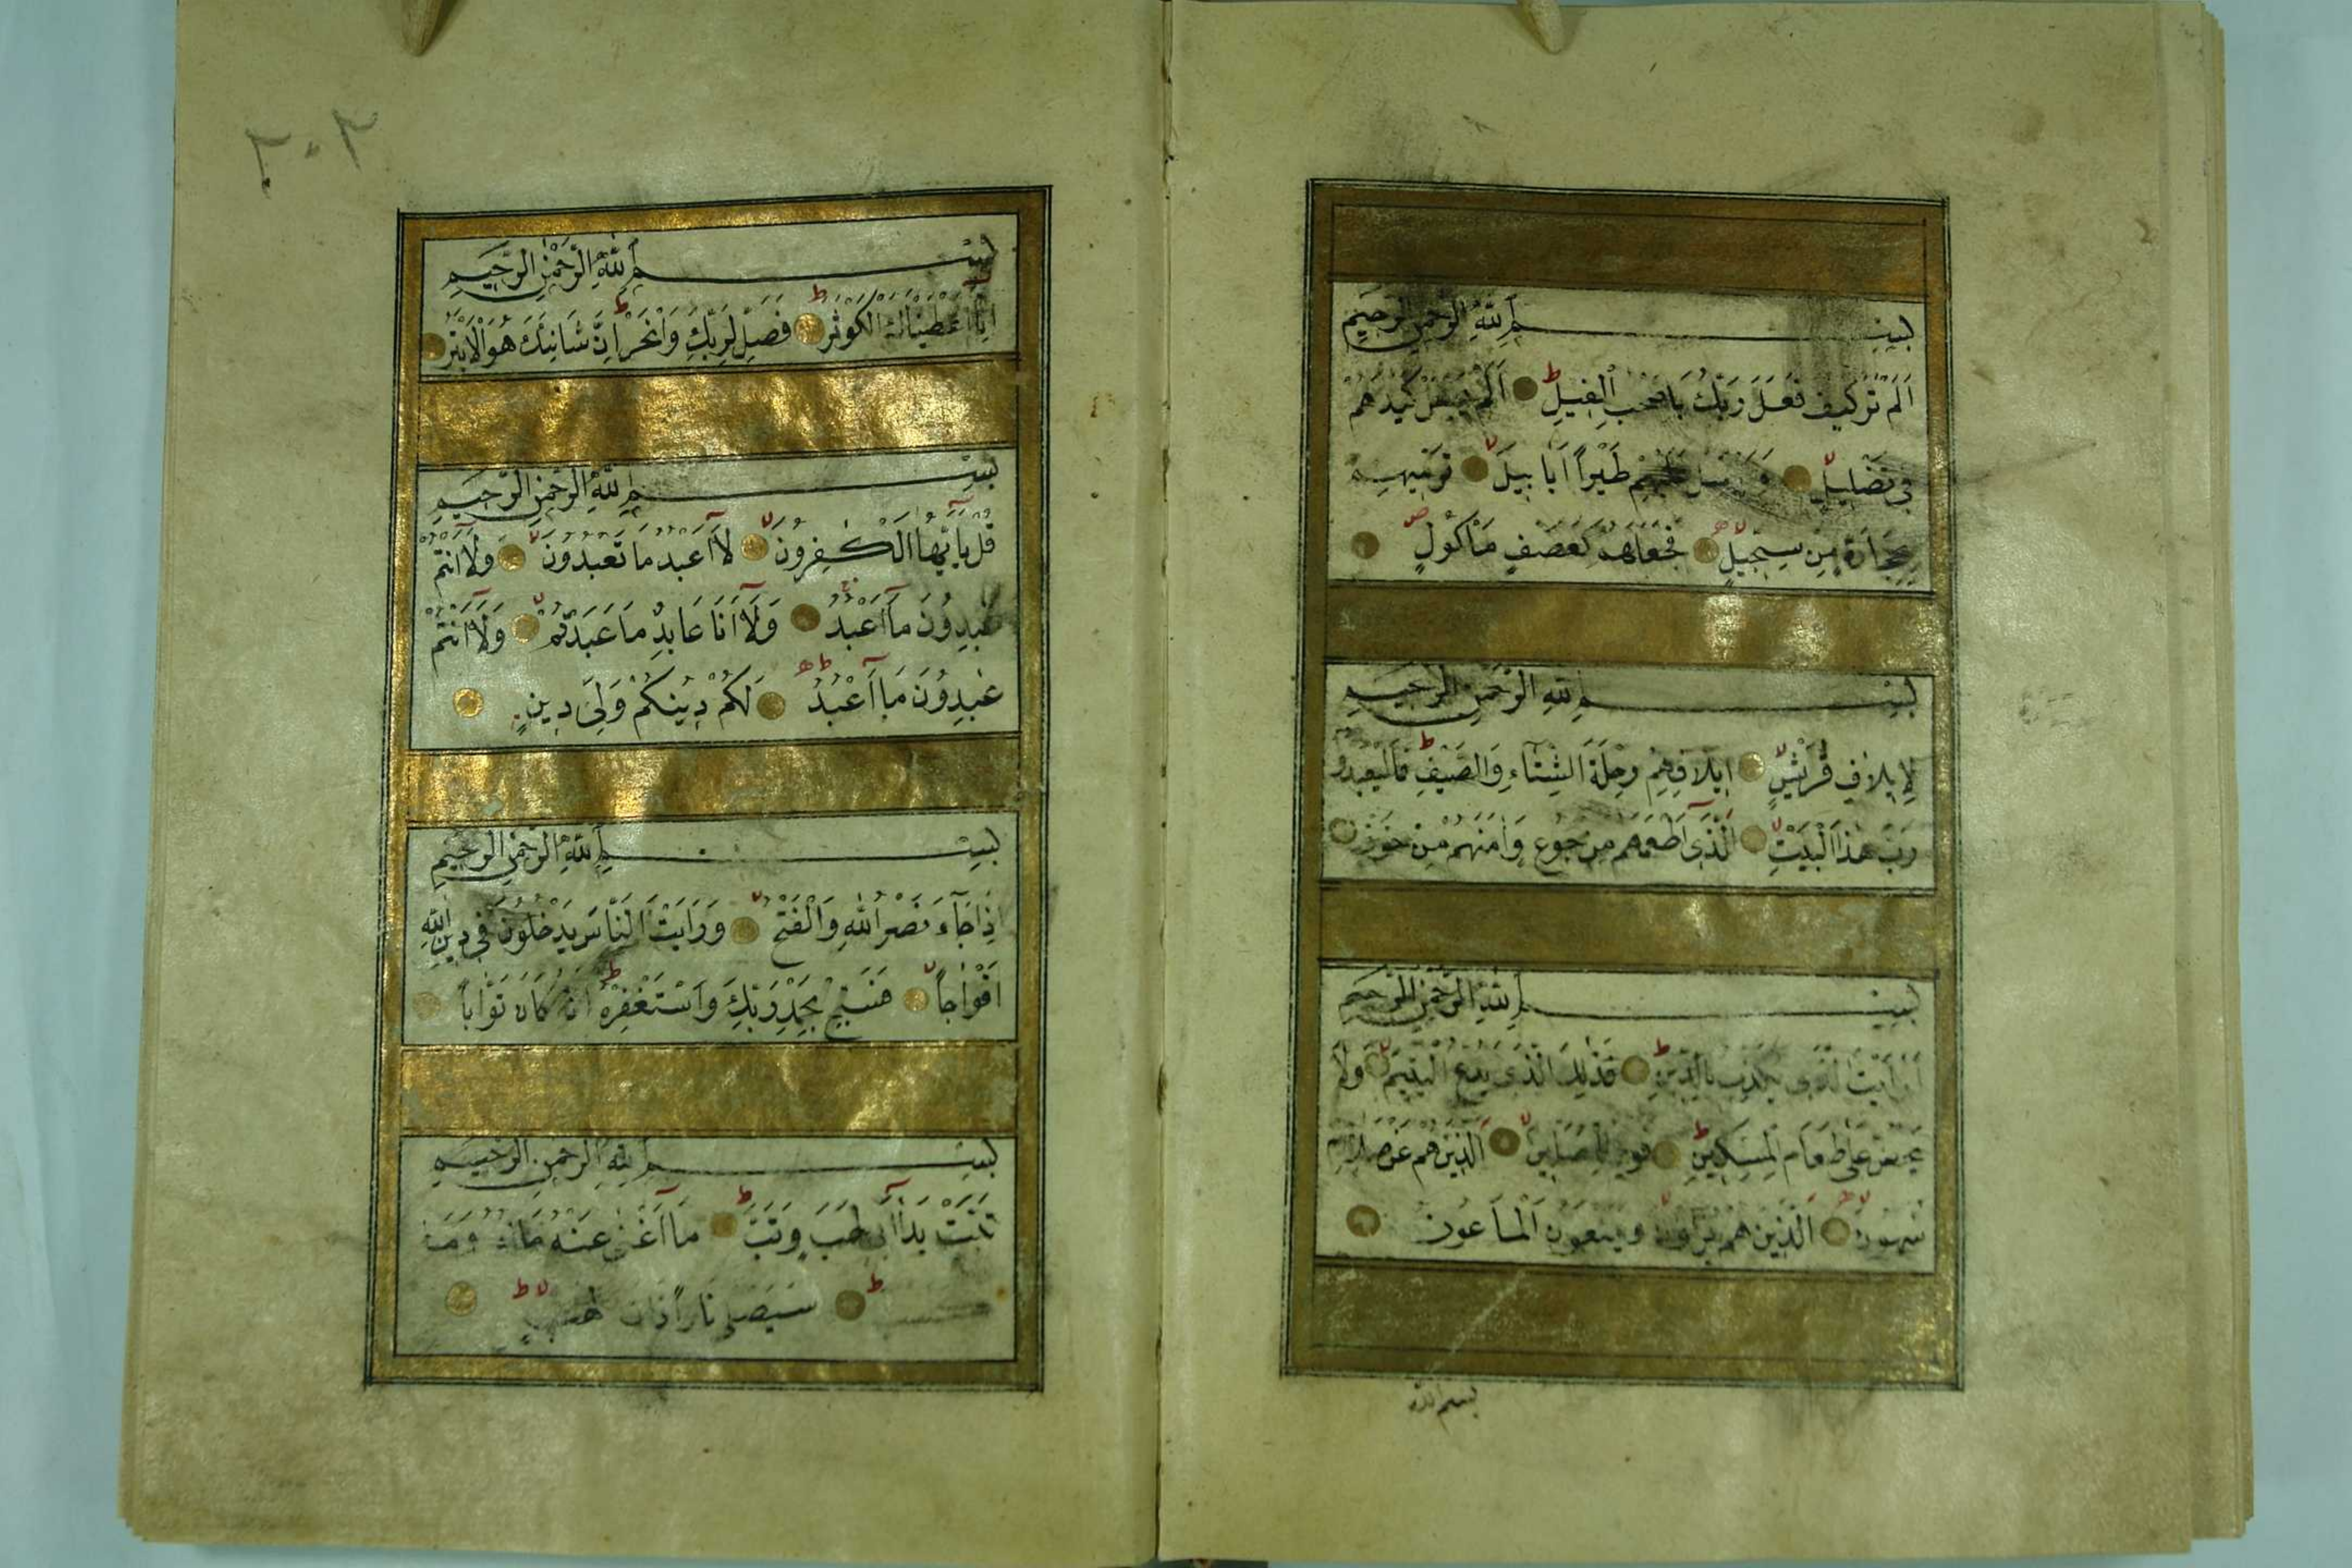 بسم الله الرحمن الرحيم
اَلَمْ تَرَ كَيْفَ فَعَلَ رَبُّكَ بِاَصْحٰبِ الْفِيلِ ط اَلَمْ يَجْعَلْ كَيْدَهُمْ
فِي تَضْلِيلٍ لا وَاَرْسَلَ عَلَيْهِمْ طَيْرًا اَبَابِيلَ لا تَرْمِيهِمْ
بِحِجَارَةٍ مِنْ سِجِّيلٍ لا فَجَعَلَهُمْ كَعَصْفٍ مَأْكُولٍ
بسم الله الرحمن الرحيم
لِاِيلَافِ قُرَيْشٍ لا اِيلَافِهِمْ رِحْلَةَ الشِّتَاءِ وَالصَّيْفِ ط فَلْيَعْبُدُوا
رَبَّ هٰذَا الْبَيْتِ لا اَلَّذِي اَطْعَمَهُمْ مِنْ جُوعٍ وَاٰمَنَهُمْ مِنْ خَوْفٍ
بسم الله الرحمن الرحيم
اَرَاَيْتَ الَّذِي يُكَذِّبُ بِالدِّينِ ط فَذٰلِكَ الَّذِي يَدُعُّ الْيَتِيمَ لا وَلَا
يَحُضُّ عَلٰى طَعَامِ الْمِسْكِينِ ط فَوَيْلٌ لِلْمُصَلِّينَ لا اَلَّذِينَ هُمْ عَنْ صَلَاتِهِمْ
سَاهُونَ لا اَلَّذِينَ هُمْ يُرَاؤُنَ لا وَيَمْنَعُونَ الْمَاعُونَ
بسم الله
٢٠٢
بسم الله الرحمن الرحيم
اِنَّا اَعْطَيْنَاكَ الْكَوْثَرَ ط فَصَلِّ لِرَبِّكَ وَانْحَرْ ط اِنَّ شَانِئَكَ هُوَ الْاَبْتَرُ
بسم الله الرحمن الرحيم
قُلْ يَا اَيُّهَا الْكٰفِرُونَ لا لَا اَعْبُدُ مَا تَعْبُدُونَ لا وَلَا اَنْتُمْ
عٰبِدُونَ مَا اَعْبُدُ وَلَا اَنَا عَابِدٌ مَا عَبَدْتُمْ لا وَلَا اَنْتُمْ
عٰبِدُونَ مَا اَعْبُدُ ط لَكُمْ دِينُكُمْ وَلِيَ دِينِ
بسم الله الرحمن الرحيم
اِذَا جَاءَ نَصْرُ اللهِ وَالْفَتْحُ لا وَرَاَيْتَ النَّاسَ يَدْخُلُونَ فِي دِينِ اللهِ
اَفْوَاجًا لا فَسَبِّحْ بِحَمْدِ رَبِّكَ وَاسْتَغْفِرْهُ ط اِنَّهُ كَانَ تَوَّابًا
بسم الله الرحمن الرحيم
تَبَّتْ يَدَا اَبِي لَهَبٍ وَتَبَّ ط مَا اَغْنٰى عَنْهُ مَالُهُ وَمَا
ط سَيَصْلٰى نَارًا ذَاتَ لَهَبٍ لا ط